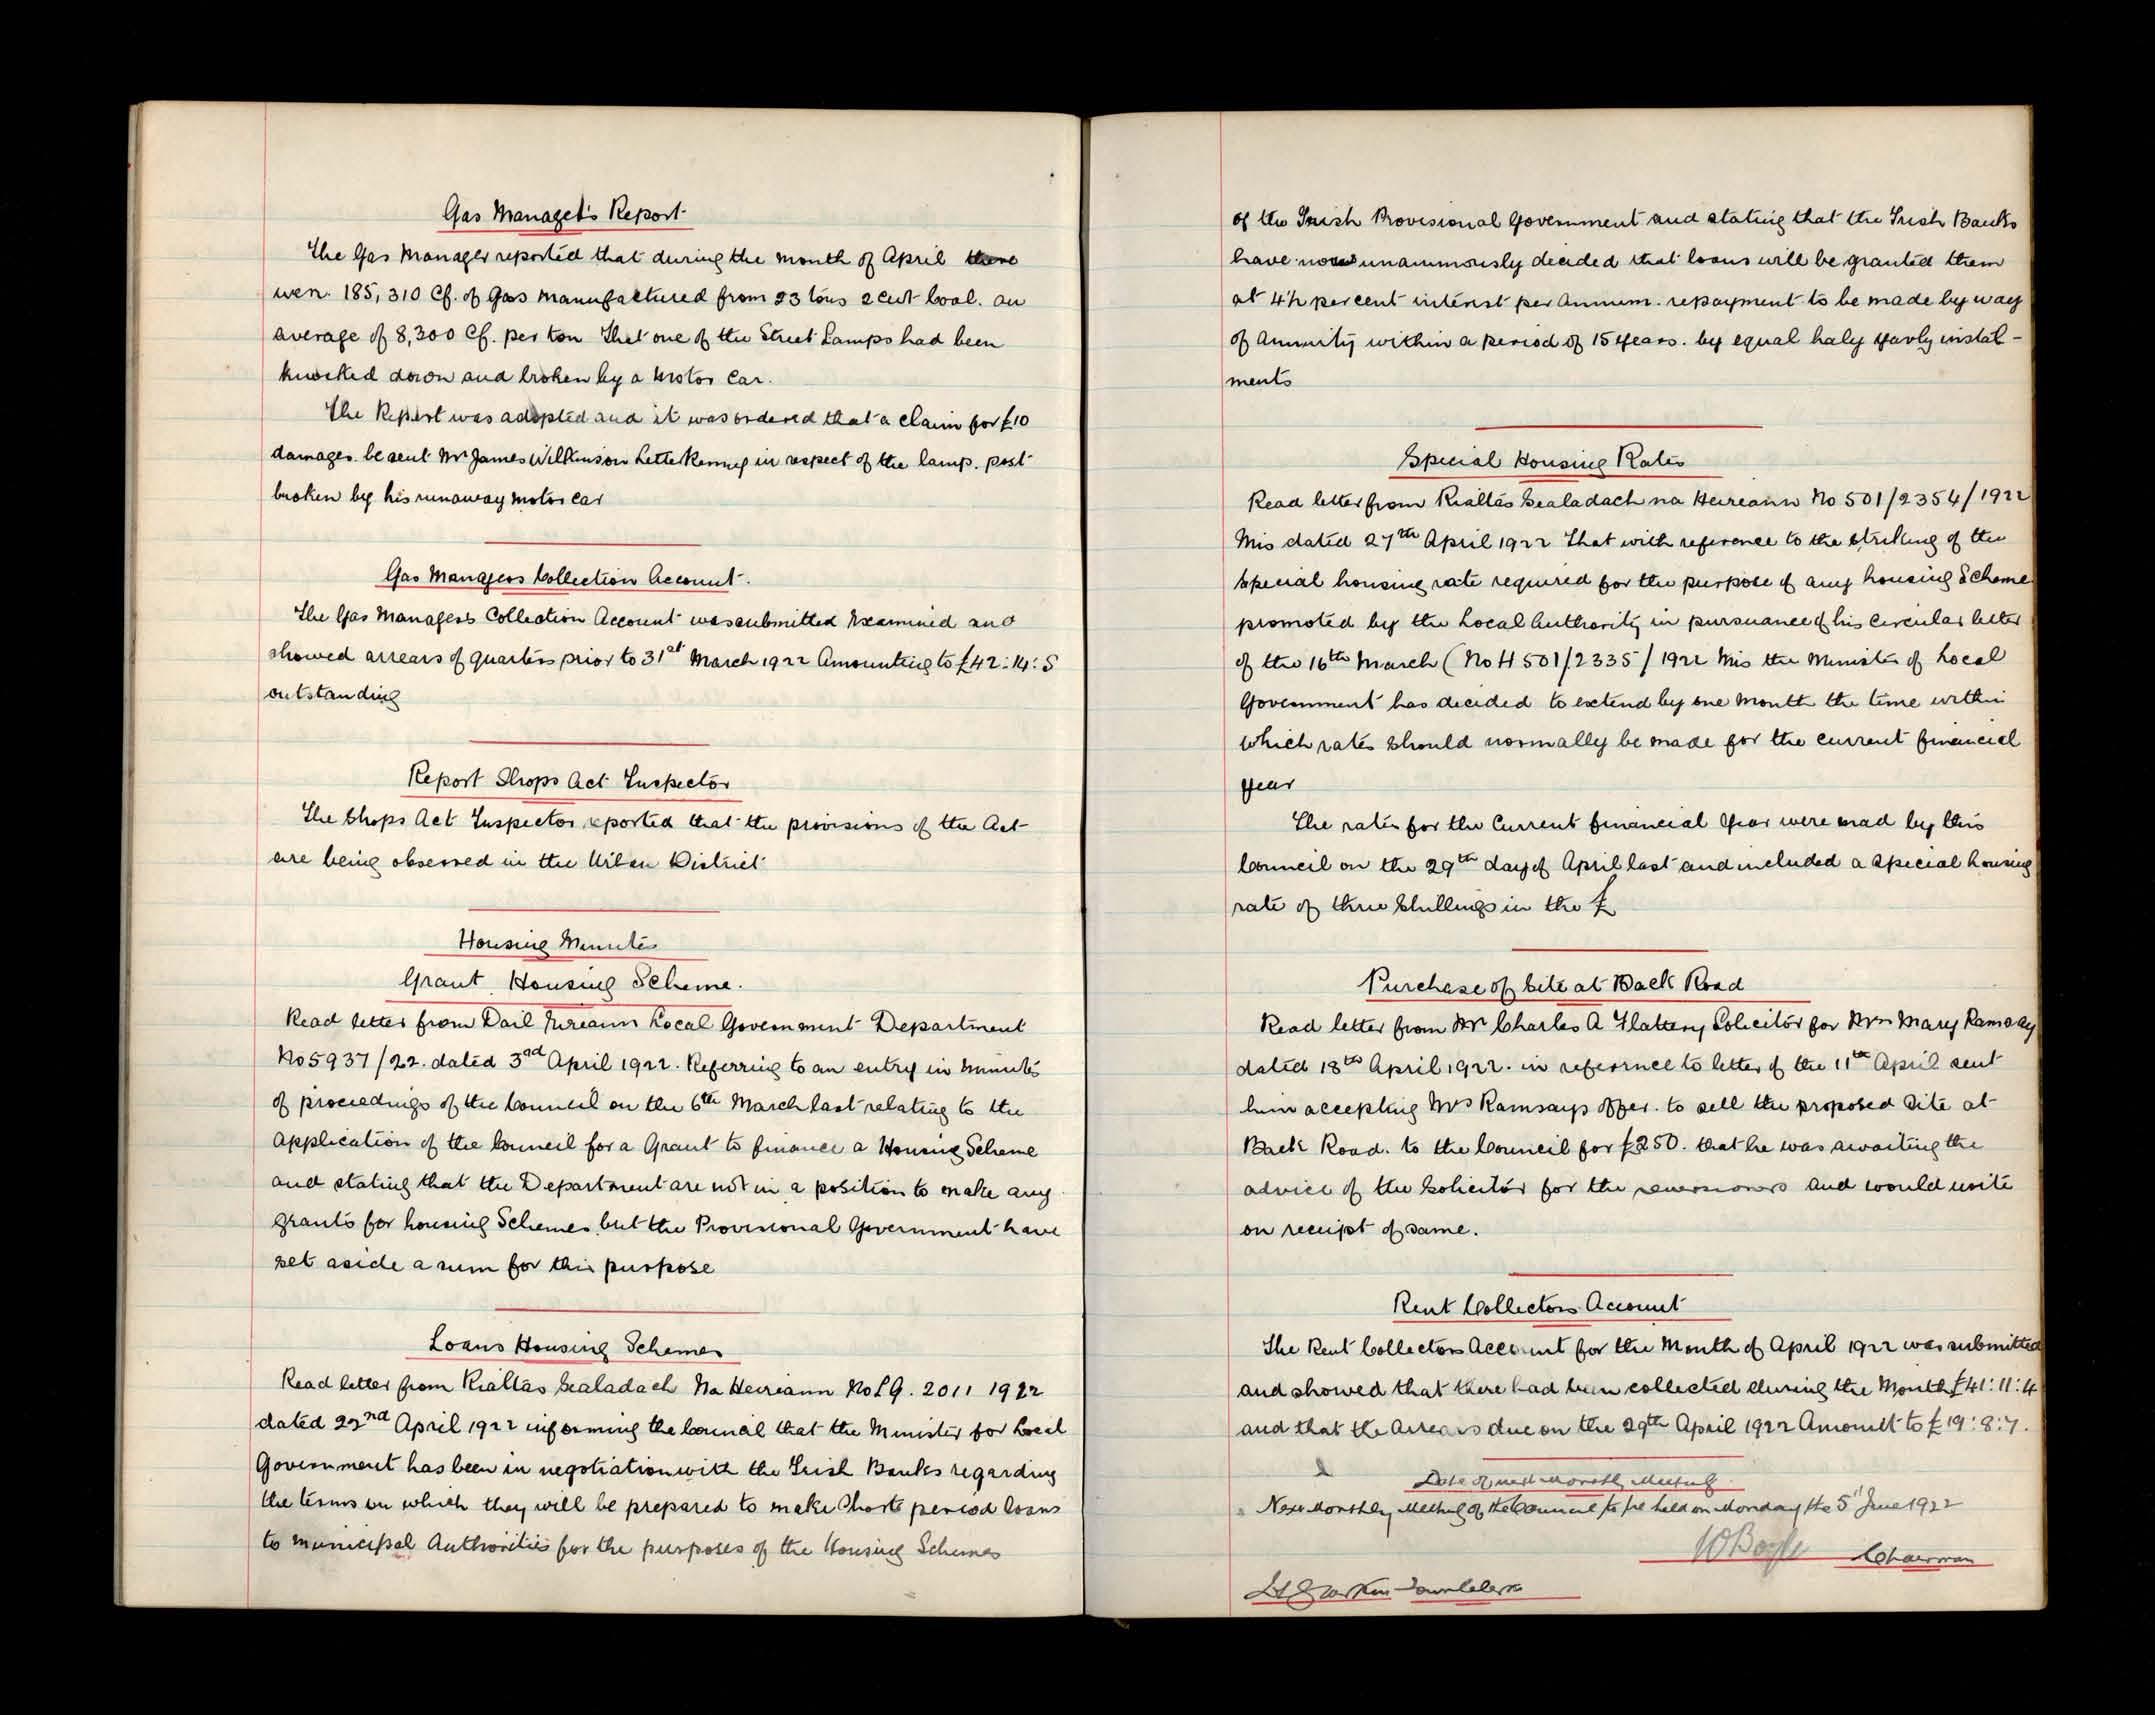 Gas Manager's Report
The Gas Manager reported that during the month of April there
were 185,310 Cf. of Gas manufactured from 23 tons 2 Cwt Coal. an
average of 8,300 Cf. per ton That one of the Street Lamps had been
knocked down and broken by a Motor Car.
The Report was adopted and it was ordered that a claim for £10
damages be sent Mr James Wilkinson Letterkenny in respect of the lamp. post
broken by his runaway motor car
Gas Managers Collection Account.
The Gas Managers Collection Account was submitted Examined and
showed arrears of quarters prior to 31st March 1922 Amounting to £42:14:5
outstanding
Report Shops Act Inspector
The Shops Act Inspector reported that the provisions of the Act
are being observed in the Urban District
Housing Minutes
Grant Housing Scheme.
Read letter from Dail Eireann Local Government Department
No 5937/22. dated 3rd April 1922. Referring to an entry in minutes
of proceedings of the Council on the 6th March last relating to the
Application of the Council for a Grant to finance a Housing Scheme
and stating that the Department are not in a position to make any
grants for housing Schemes but the Provisional Government have
set aside a sum for this purpose
Loans Housing Schemes
Read letter from Rialtás Sealadach Na Heireann No LG. 2011 1922
dated 22nd April 1922 informing the Council that the Minister for Local
Government has been in negotiation with the Irish Banks regarding
the terms on which they will be prepared to make Short period loans
to municipal Authorities for the purposes of the Housing Schemes
of the Irish Provisional Government and stating that the Irish Banks
have now unanimously decided that loans will be granted them
at 4½ per cent interest per Annum. repayment to be made by way
of Annuity within a period of 15 years. by equal haly yearly instal-
ments
Special Housing Rates
Read letter from Rialtás Sealadach na Heireann No 501/2354/1922
Mis dated 27th April 1922 That with reference to the striking of the
Special housing rate required for the purpose of any housing Scheme
promoted by the Local Authority in pursuance of his Circular letter
of the 16th March (No H 501/2335/1922 Mis the Minister of Local
Government has decided to extend by one month the time within
which rates should normally be made for the current financial
year
The rates for the Current financial Year were mad by this
Council on the 29th day of April last and included a special housing
rate of three Shillings in the £
Purchase of Site at Back Road
Read letter from Mr Charles A Flattery Solicitor for Mrs Mary Ramsay
dated 18th April 1922. in reference to letter of the 11th April sent
him accepting Mrs Ramsays offer. to sell the proposed Site at
Back Road. to the Council for £250. that he was awaiting the
advice of the Solicitor for the reversioners and would write
on receipt of same.
Rent Collectors Account
The Rent Collectors Account for the Month of April 1922 was submitted
and showed that there had been collected during the Month £41:11:4
and that the Arrears due on the 29th April 1922 Amount to £19:8:7.
Date of next Monthly Meeting
Next Monthly Meeting of the Council to be held on Monday the 5th June 1922
WBoyle Chairman
Town Clerk